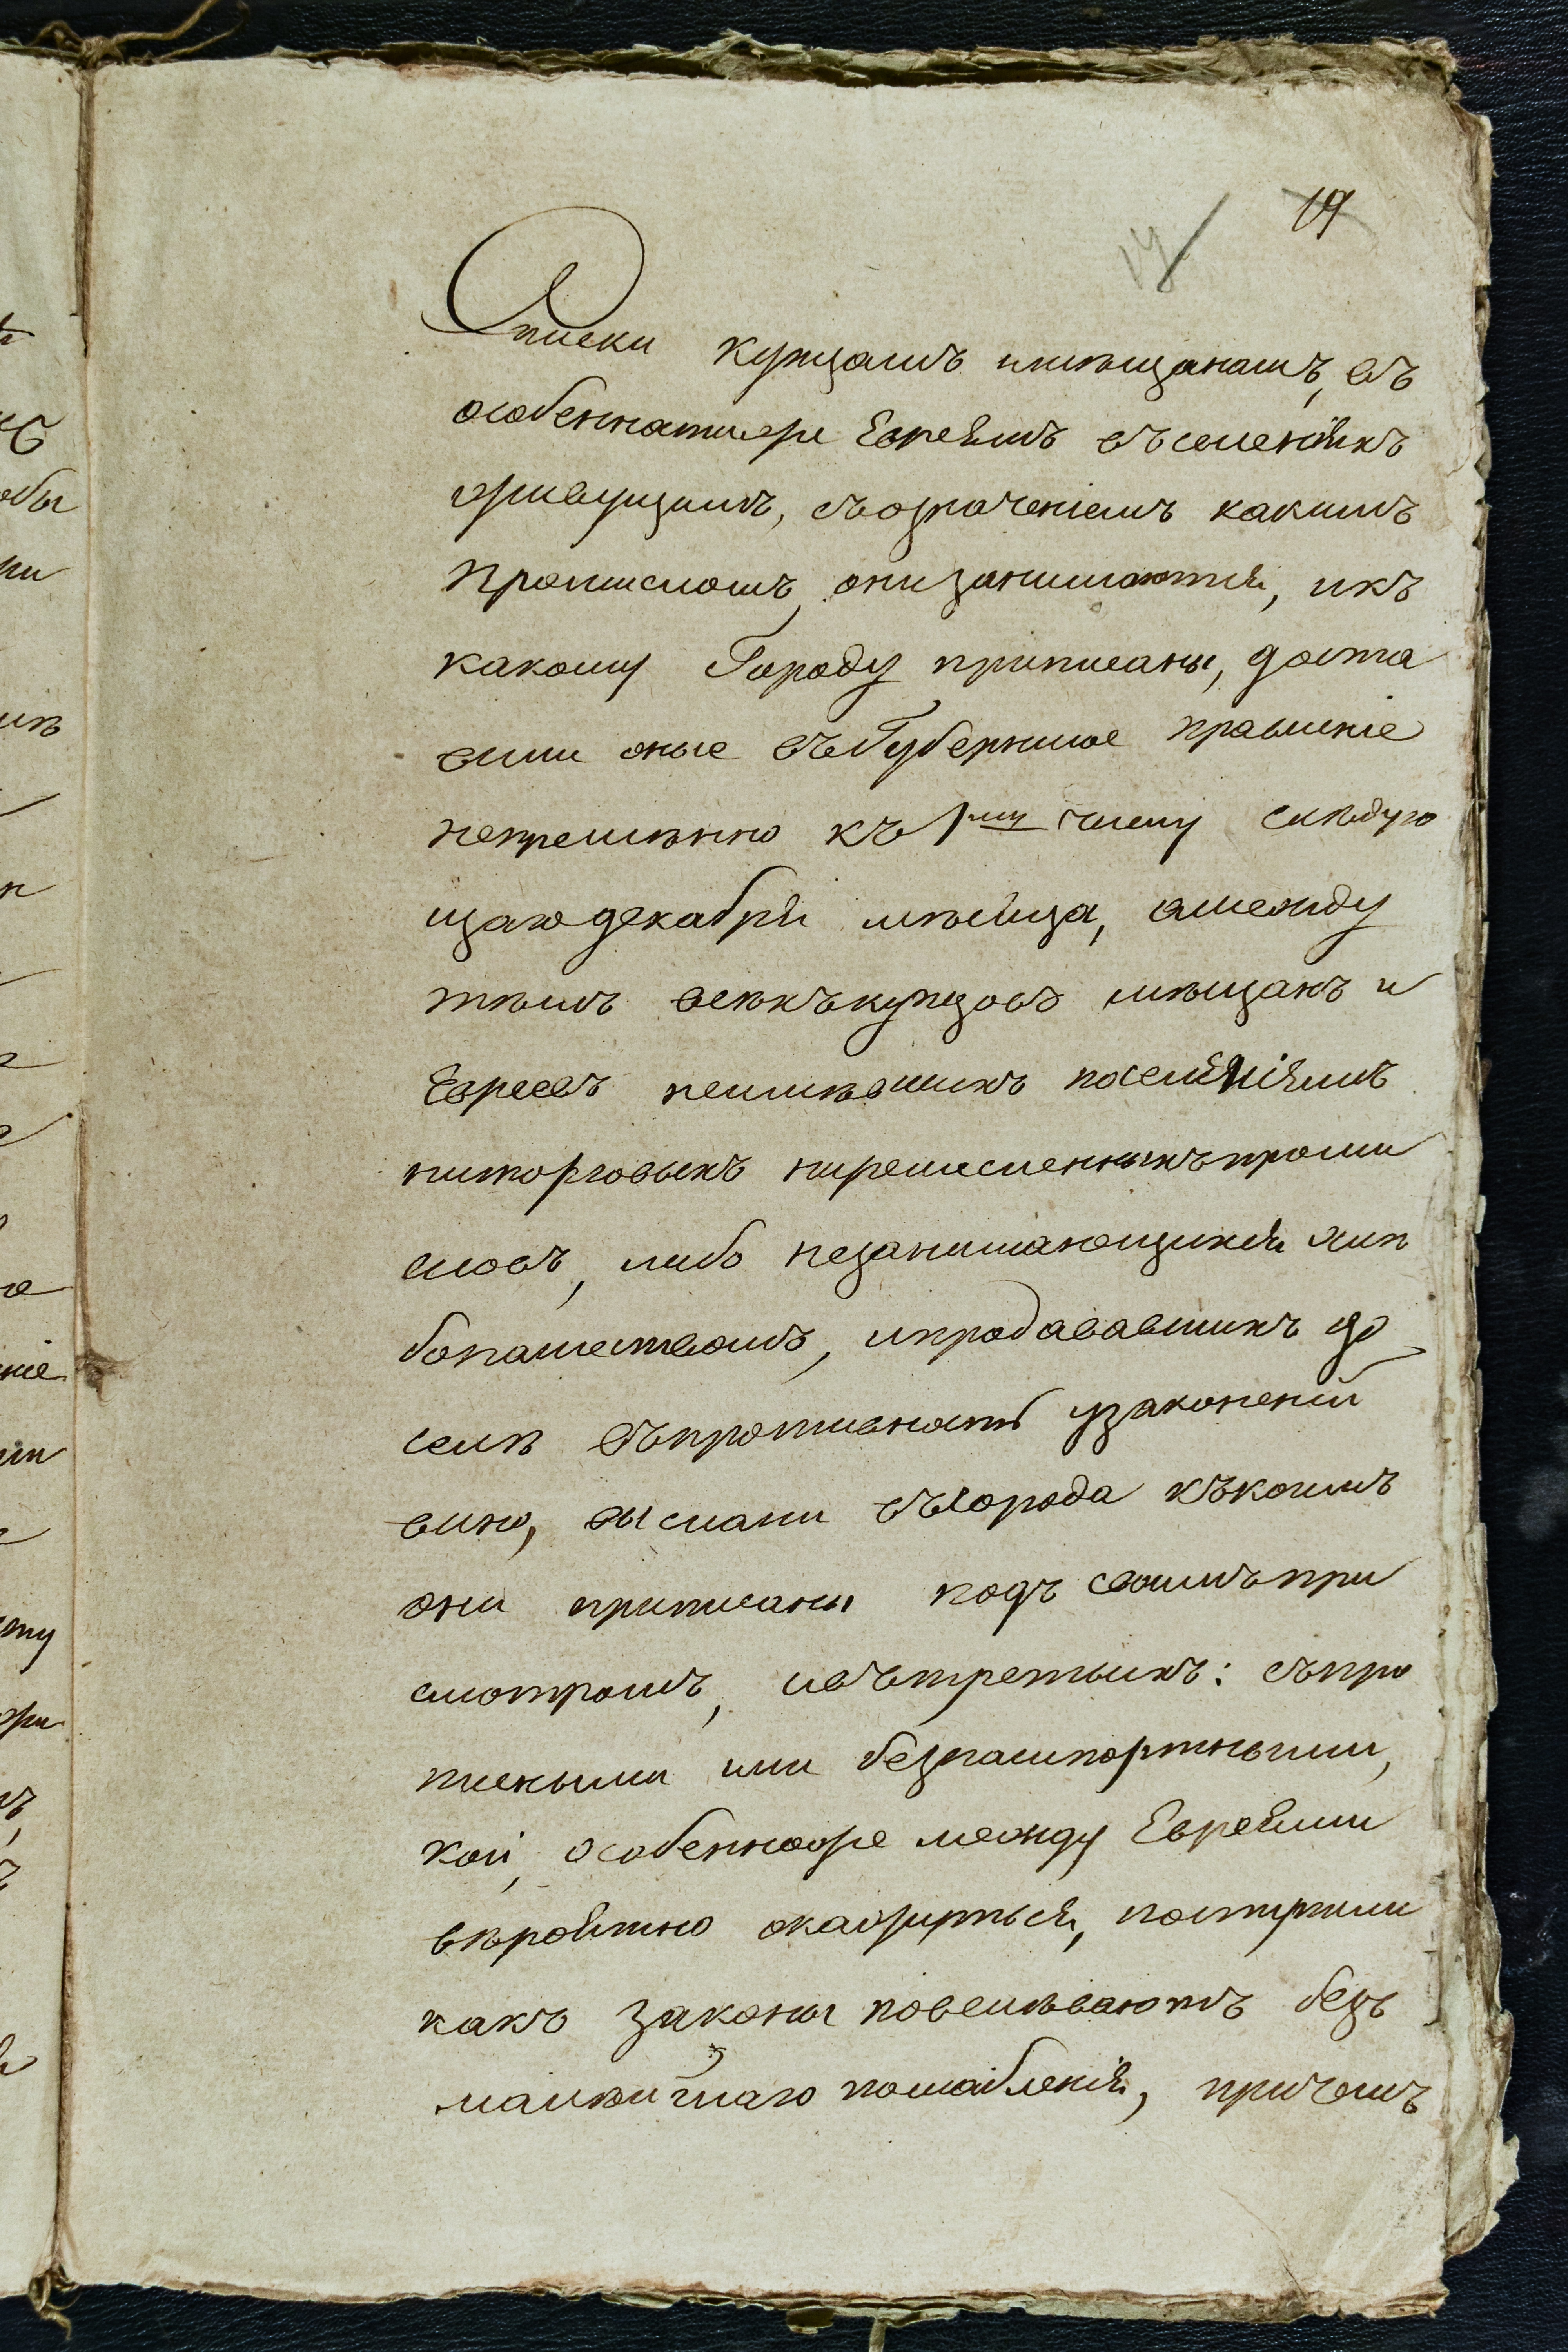 19
Списки купцамъ имѣщанамъ, въ
особенностиже Евреямъ въселенiяхъ
живущимъ, съозначенiемъ какимъ
промысломъ онизанимаются, икъ
какому Городу приписаны, доста
вили оные въГубернское правленiе
непремѣнно къ 1му числу слѣдую
щаго декабря мѣсяца, амежду
тѣмъ всѣхъкупцовъ мѣщанъ и
Евреевъ неимѣвшихъ поселенiямъ
ниторговыхъ ниремесленныхъпромы
словъ, либо незанимающихся хлѣ
бопашествомъ, ипродававшихъ до
селѣ въпротивность узаконенiй
вино, выслали въгорода къкоимъ
они приписаны подъ своимъпри
смотромъ, ивътретьихъ: съпро
писными или безпашпортными,
кои, особенноже между Евреями
вѣроятно окажутся, поступили
какъ законы повелѣваютъ безъ
малѣйшаго послабленiя, причемъ